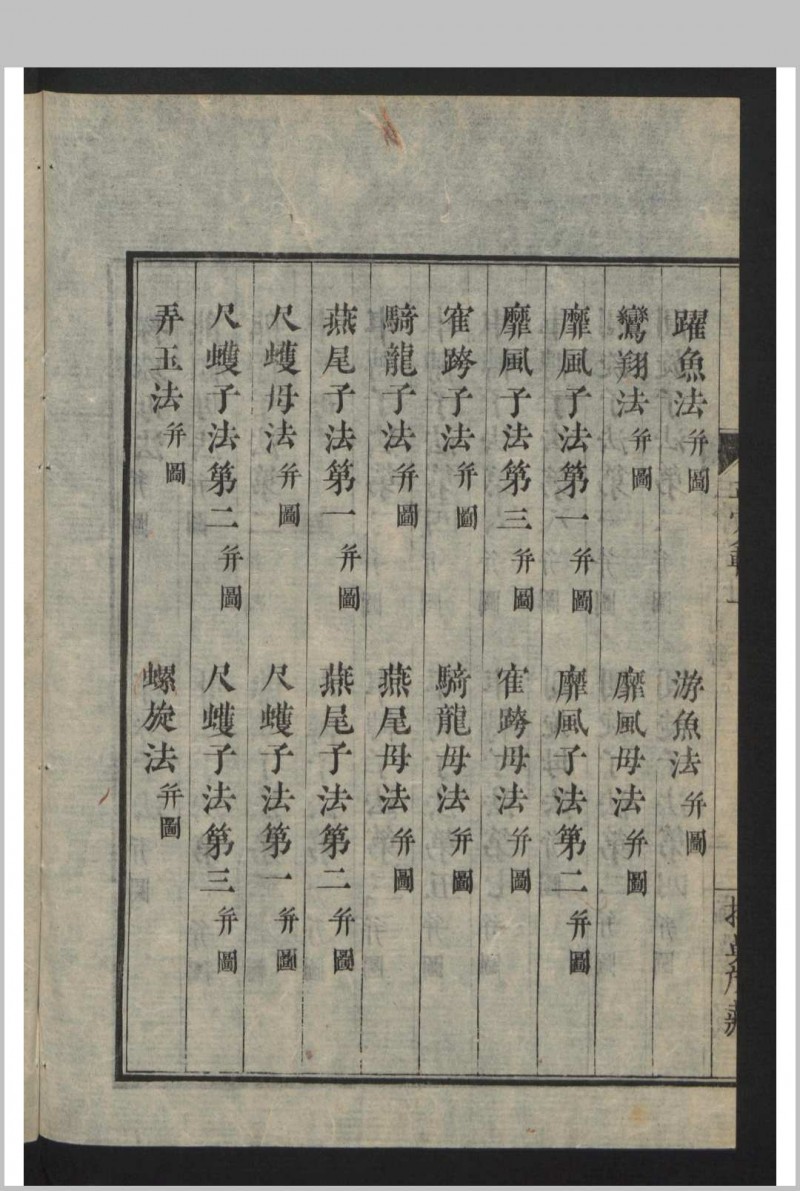 躍魚法并圖　游魚法并圖
鸞翔法并圖　靡風母法并圖
靡風子法第一并圖　靡風子法第二并圖
靡風子法第三并圖　寉踦母法并圖
寉踦子法并圖　騎龍母法并圖
騎龍子法并圖　燕尾母法并圖
燕尾子法第一并圖　燕尾子法第二并圖
尺蠖母法并圖　尺蠖子法第一并圖
尺蠖子法第二并圖　尺蠖子法第三并圖
弄玉法并圖　螺旋法并圖